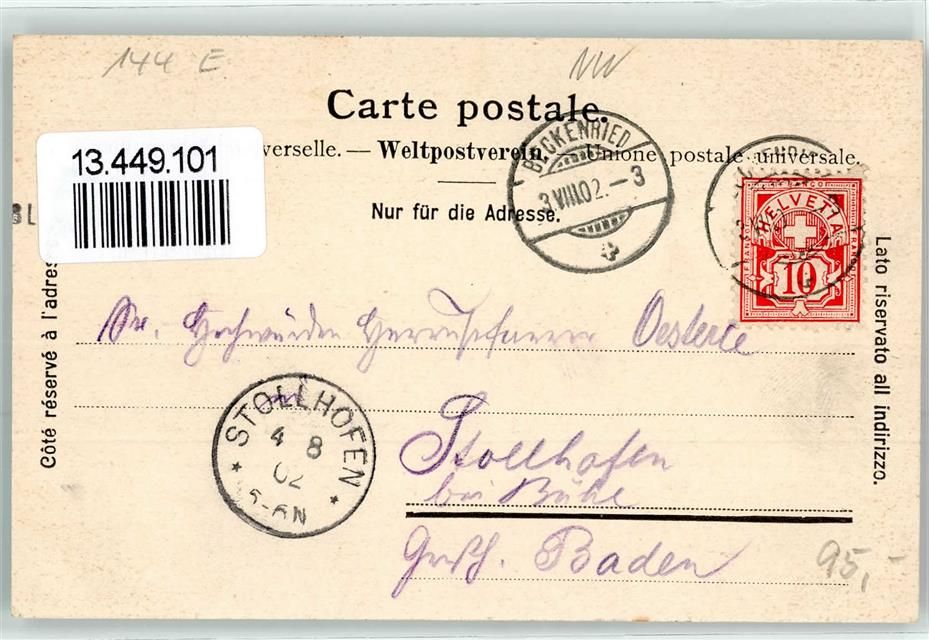 144 E
NW
Carte postale.
13.449.101
verselle. — Weltpostverein. Unione postale universale.
Nur für die Adresse.
BECKENRIED
3 VIII.02.–3
HELVETIA
10
Côté réservé à l'adres
Lato riservato all indirizzo.
Sr. Hochwürden Herrn Pfarrer Oesterle
in
STOLLHOFEN
4 8
02
5-6N
Stollhofen
bei Bühl
Großh. Baden
95,-